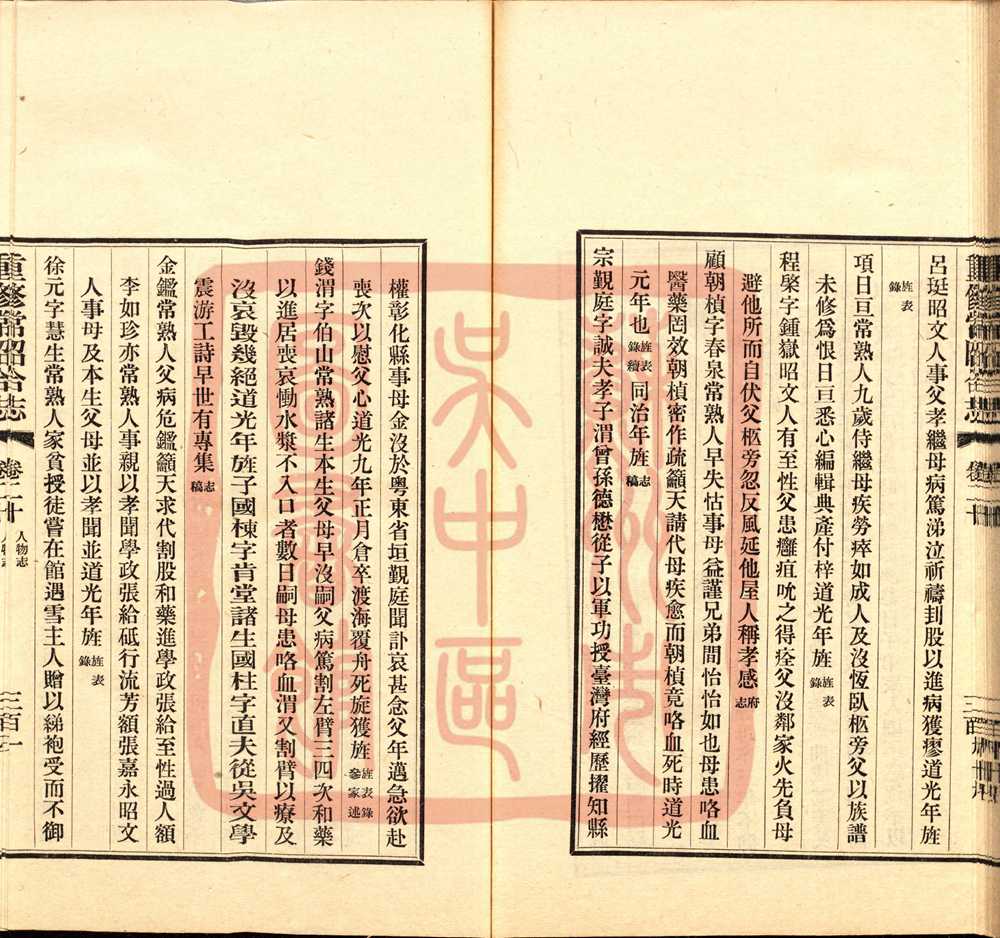 呂珽昭文人事父孝繼母病篤涕泣祈禱刲股以進病獲瘳道光年旌
旌表錄
項日亘常熟人九歲侍繼母疾勞瘁如成人及沒恆臥柩旁父以族譜
未修爲恨日亘悉心編輯典產付梓道光年旌旌表錄
程棨字鍾嶽昭文人有至性父患癰疽吮之得痊父沒鄰家火先負母
避他所而自伏父柩旁忽反風延他屋人稱孝感府志
顧朝楨字春泉常熟人早失怙事母益謹兄弟間怡怡如也母患咯血
醫藥罔效朝楨密作疏籲天請代母疾愈而朝楨竟咯血死時道光
元年也旌表續錄同治年旌志稿
宗覲庭字誠夫孝子渭曾孫德懋從子以軍功授臺灣府經歷擢知縣
權彰化縣事母金沒於粵東省垣覲庭聞訃哀甚念父年邁急欲赴
喪次以慰父心道光九年正月倉卒渡海覆舟死旋獲旌旌表錄參家述
錢渭字伯山常熟諸生本生父母早沒嗣父病篤割左臂三四次和藥
以進居喪哀慟水漿不入口者數日嗣母患咯血渭又割臂以療及
沒哀毀幾絕道光年旌子國棟字肯堂諸生國柱字直夫從吳文學
震游工詩早世有專集志稿
金鑑常熟人父病危鑑籲天求代割股和藥進學政張給至性過人額
李如珍亦常熟人事親以孝聞學政張給砥行流芳額張嘉永昭文
人事母及本生父母並以孝聞並道光年旌旌表錄
徐元字慧生常熟人家貧授徒嘗在館遇雪主人贈以綈袍受而不御
重修常昭合志
卷二十
人物志
三百一
吳中區